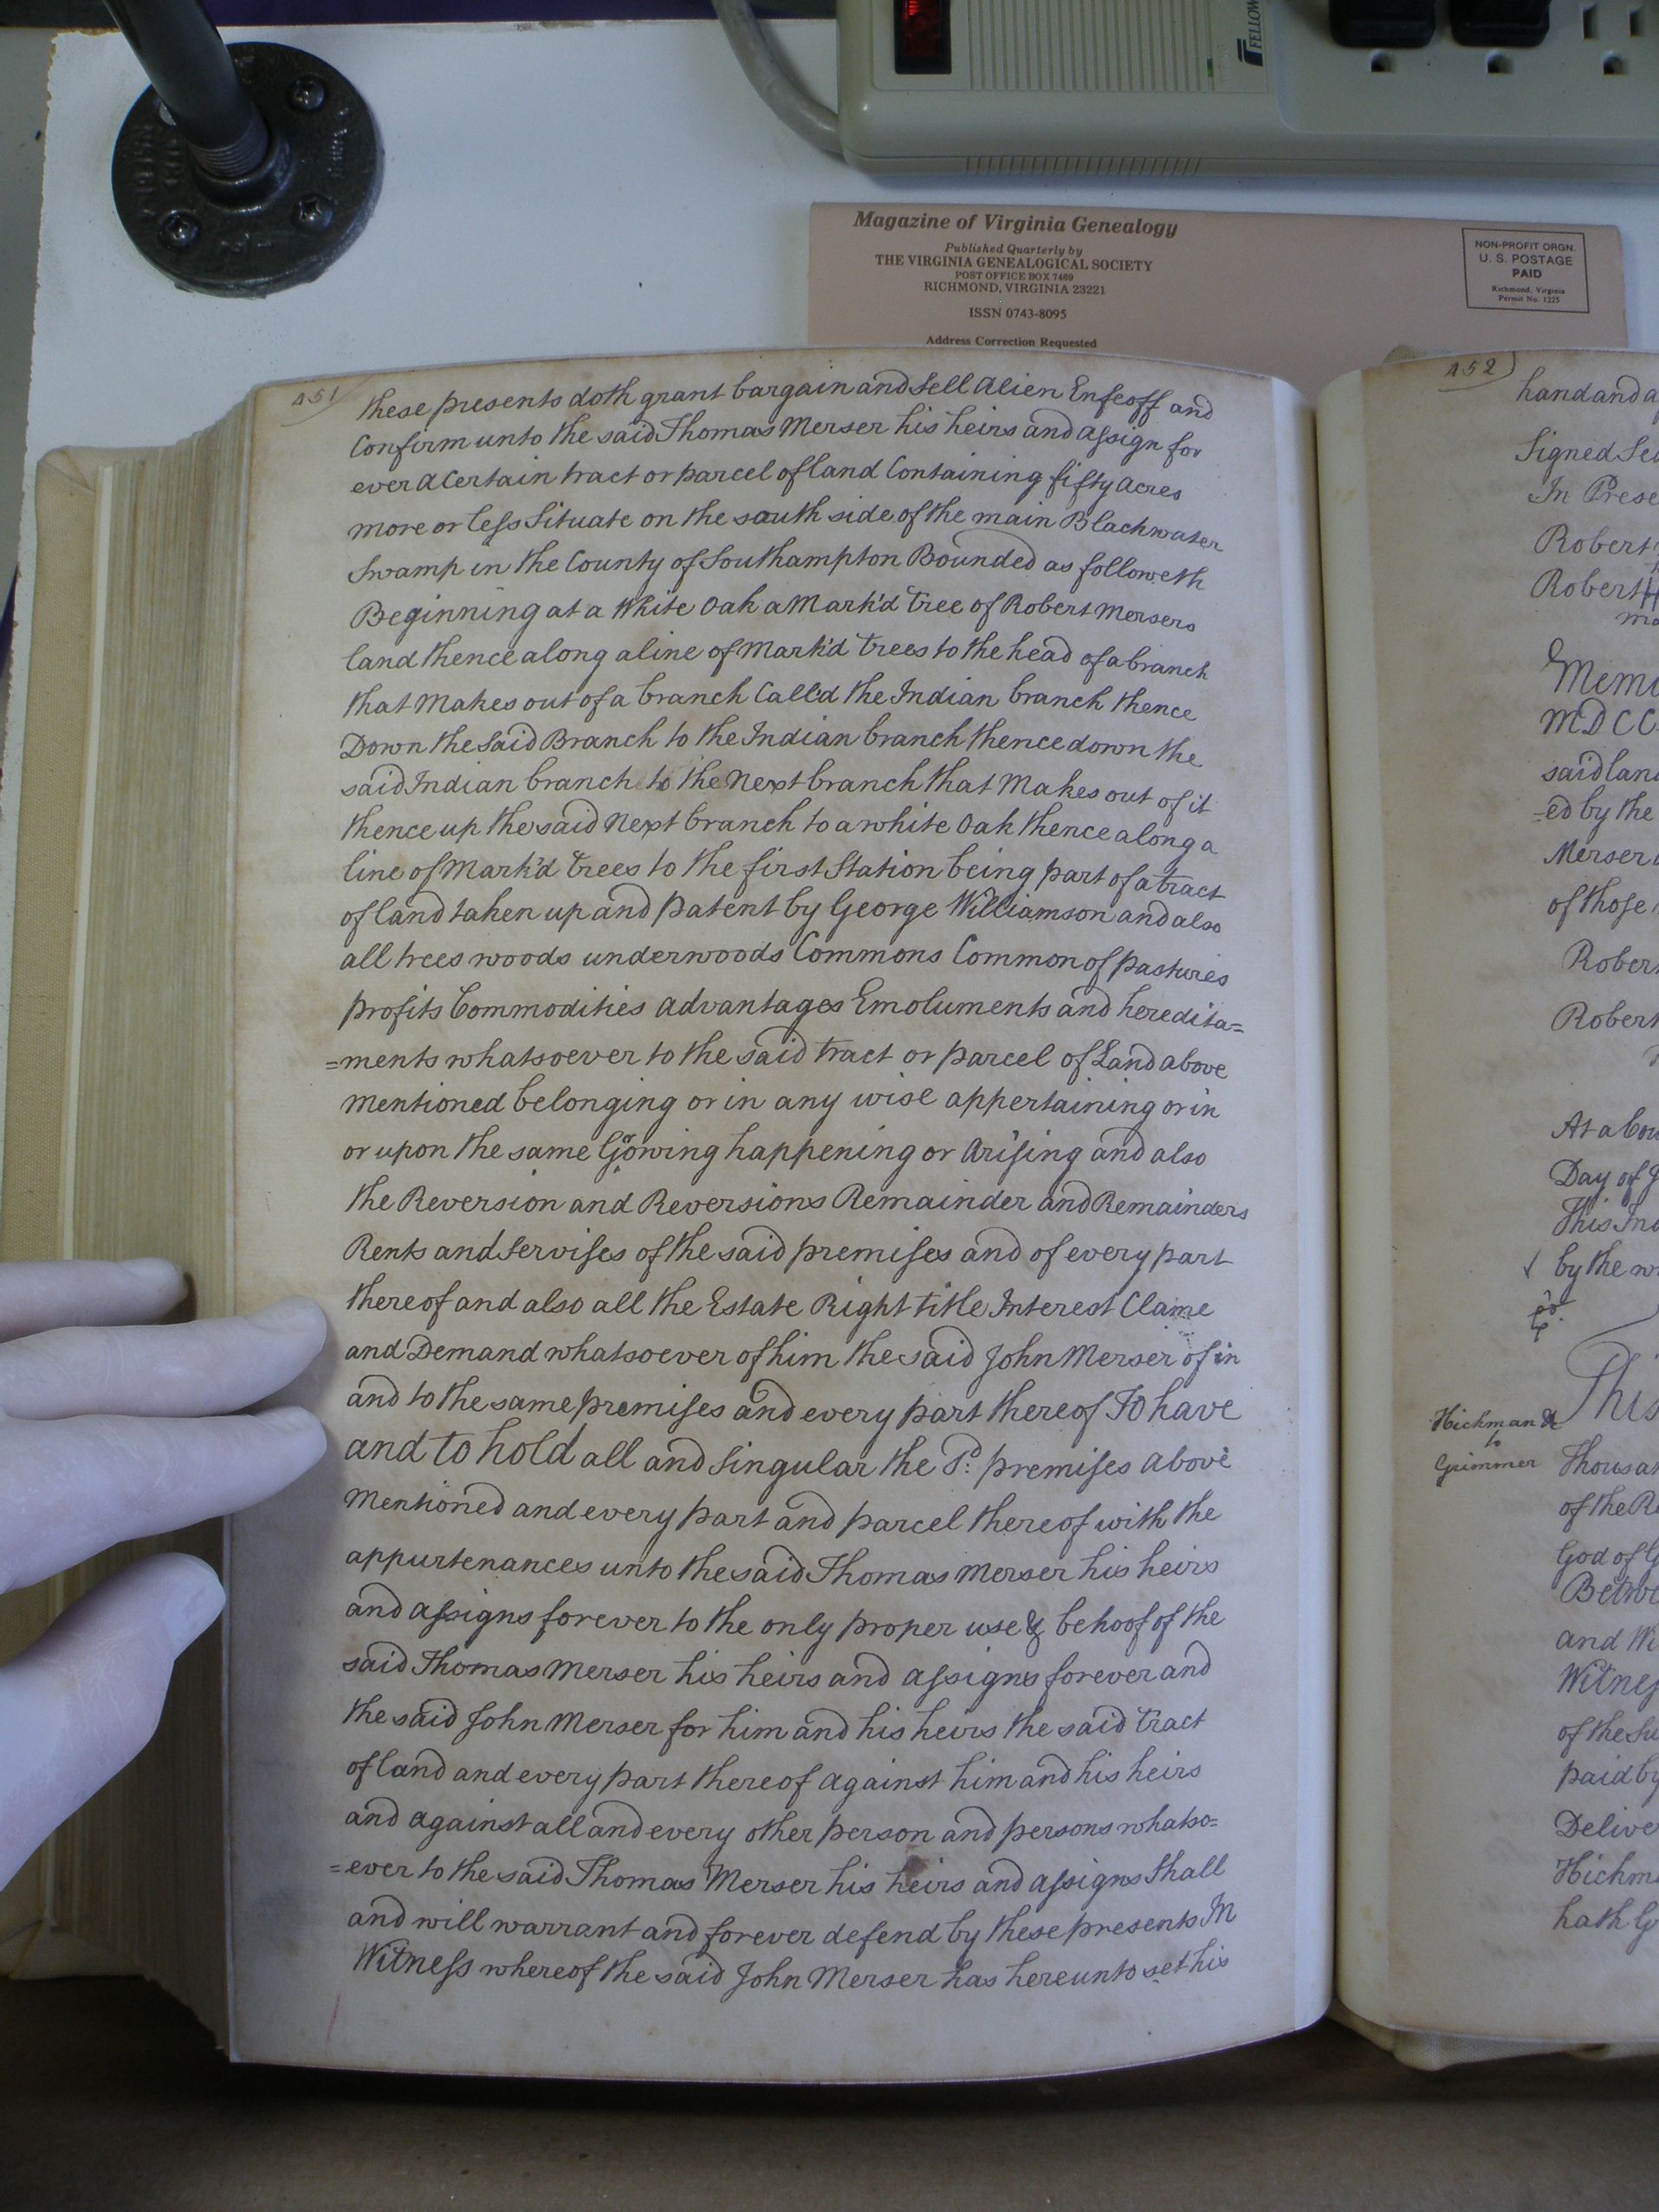 FELLOW
Magazine of Virginia Genealogy
Published Quarterly by
THE VIRGINIA GENEALOGICAL SOCIETY
POST OFFICE BOX 7469
RICHMOND, VIRGINIA 23221
ISSN 0743-8095
Address Correction Requested
NON-PROFIT ORGN.
U. S. POSTAGE
PAID
Richmond, Virginia
Permit No. 1225
451
these presents doth grant bargain and Sell Alien Enfeoff and
Confirm unto the said Thomas Merser his heirs and assign for
ever a Certain tract or parcel of land Containing fifty acres
more or less Situate on the south side of the main Blackwater
Swamp in the County of Southampton Bounded as followeth
Beginning at a White Oak a Mark'd Tree of Robert Mersers
land thence along a line of Mark'd trees to the head of a branch
that Makes out of a branch Call'd the Indian branch thence
Down the Said Branch to the Indian branch thence down the
said Indian branch to the Next branch that Makes out of it
thence up the said Next branch to a white Oak thence along a
line of Mark'd trees to the first Station being part of a tract
of land taken up and patent by George Williamson and also
all trees woods underwoods Commons Common of pastures
profits Commodities advantages Emoluments and heredita=
=ments whatsoever to the said tract or parcel of Land above
mentioned belonging or in any wise appertaining or in
or upon the same Growing happening or Arising and also
the Reversion and Reversions Remainder and Remainders
Rents and Servises of the said premises and of every part
thereof and also all the Estate Right title Interest Clame
and Demand whatsoever of him the said John Merser of in
and to the same premises and every part thereof To have
and to hold all and Singular the Sd: premises above
mentioned and every part and parcel thereof with the
appurtenances unto the said Thomas Merser his heirs
and assigns forever to the only proper use & behoof of the
said Thomas Merser his heirs and assigns forever and
the said John Merser for him and his heirs the said tract
of land and every part thereof against him and his heirs
and against all and every other person and persons whatso=
=ever to the said Thomas Merser his heirs and assigns Shall
and will warrant and forever defend by these presents In
Witness whereof the said John Merser has hereunto set his
452
hand and
Signed
In
Robert
Robert
MDCC
said
=ed by the
Merser
of those
At
Day of
This
by the
Hickman &
to
Grimmer
This
of the
God of
and
of the
paid by
hath